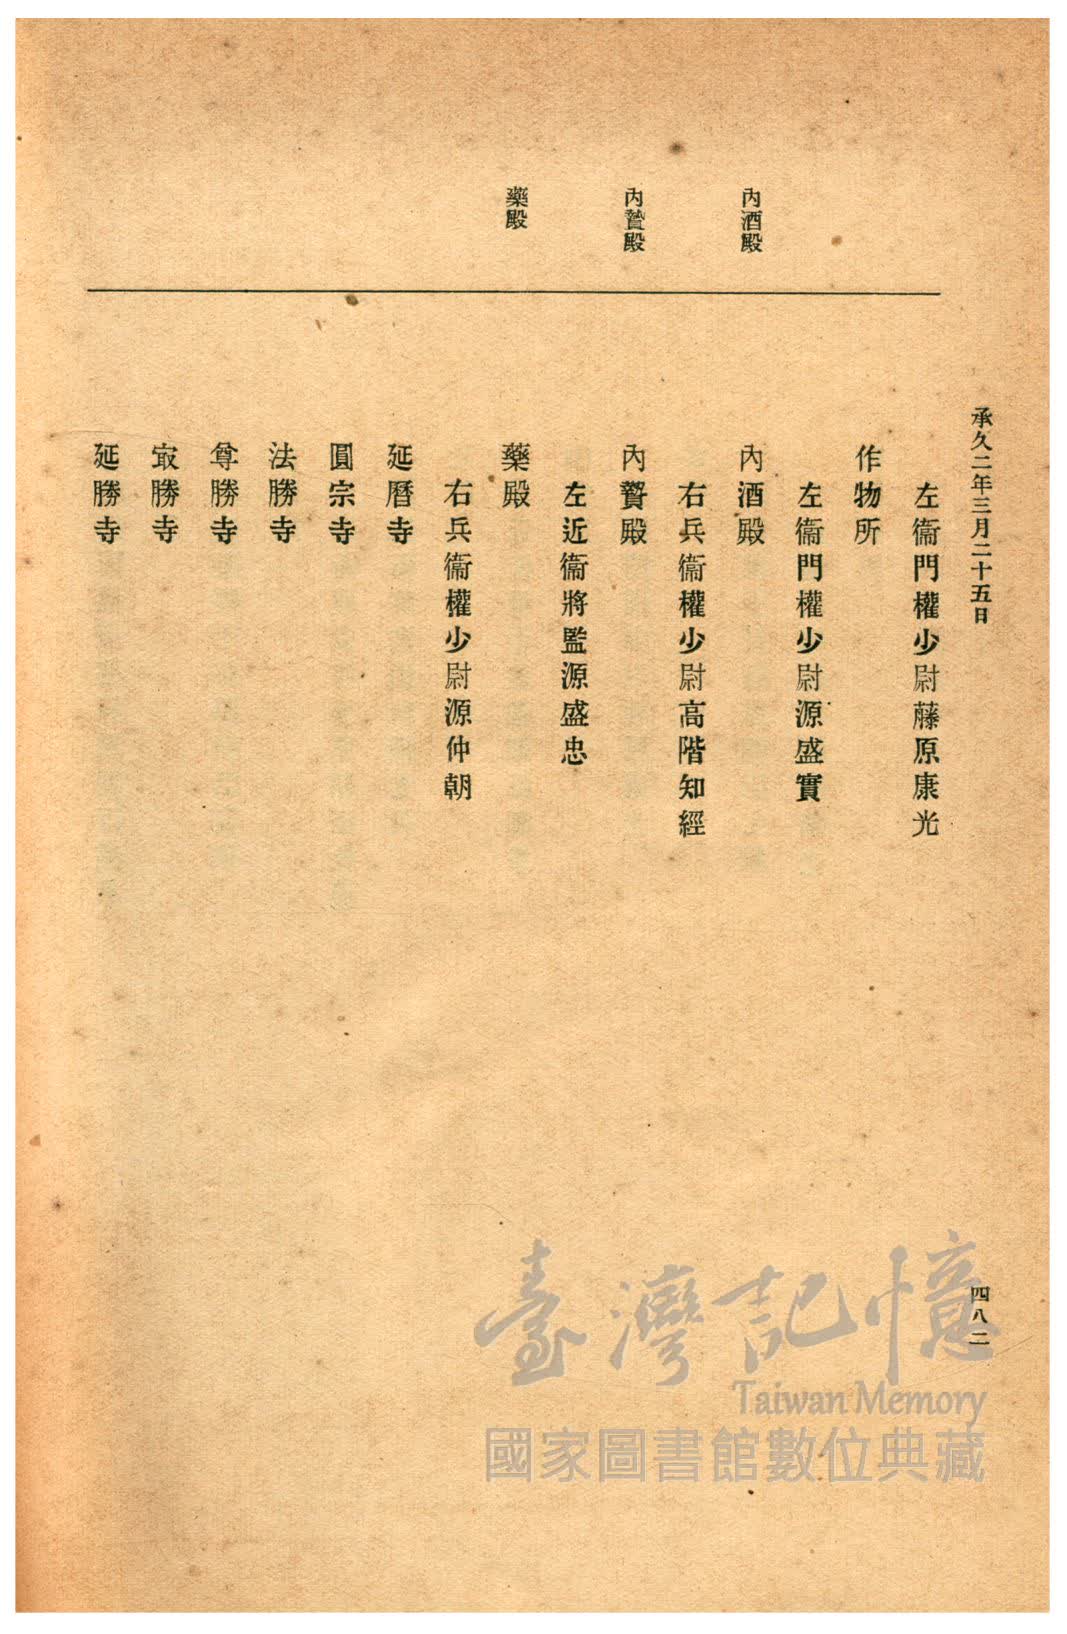 承久二年三月二十五日
四八二
內酒殿
內贄殿
藥殿
左衞門權少尉藤原康光
作物所
左衞門權少尉源盛實
內酒殿
右兵衞權少尉高階知經
內贄殿
左近衞將監源盛忠
藥殿
右兵衞權少尉源仲朝
延曆寺
圓宗寺
法勝寺
尊勝寺
㝡勝寺
延勝寺
臺灣記憶
Taiwan Memory
國家圖書館數位典藏